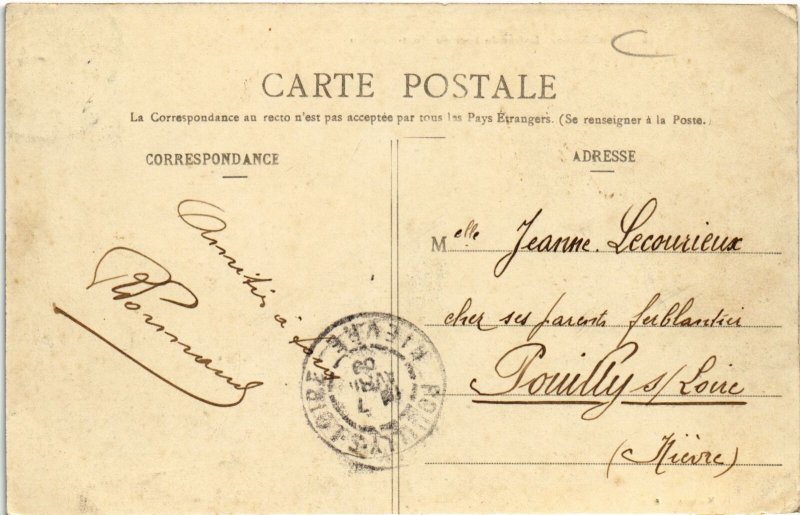 CARTE POSTALE
La Correspondance au recto n'est pas acceptée par tous les Pays Étrangers. (Se renseigner à la Poste.)
CORRESPONDANCE
Amitiés à tous
Normand
ADRESSE
Melle Jeanne Lecourieux
cher ses parents ferblantier
Pouilly s/ Loire
(Nièvre)
POUILLY-S-LOIRE
NIEVRE